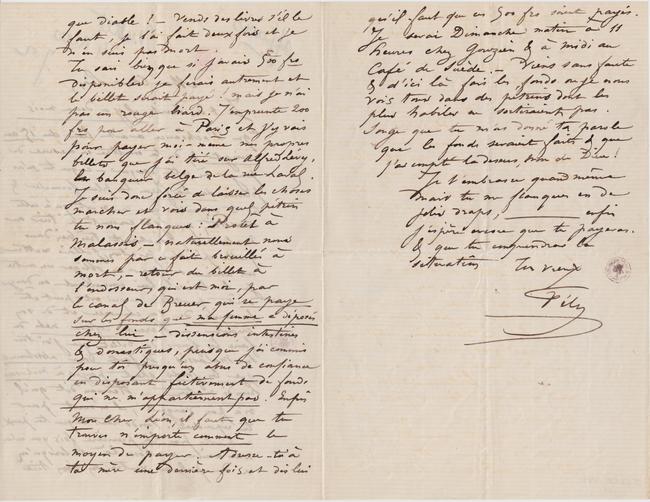 que diable ! – Vends des livres s'il le
faut, je l'ai fait deux fois et je
n'en suis pas mort.
Tu sais bien que si j'avais 500 frs
disponibles je ferais autrement et
le billet serait payé ! mais je n'ai
pas un rouge liard. J'emprunte 200
frs pour aller à Paris et j'y vais
pour payer moi-même mes propres
billets que j'ai tiré sur Alfred Lévy,
banquier belge de la rue Laval.
Je suis donc forcé de laisser les choses
marcher et vois dans quel pétrin
tu nous flanques : Protêt à
Malassis – naturellement nous
sommes par ce fait brouillés à
mort, – retour du billet à
l'endosseur, qui est moi, par
le canal de Breuer, qui se paye
sur les fonds que ma femme a déposés
chez lui – dissensions intestines
& domestiques, puisque j'ai commis
pour toi presqu'un abus de confiance
en disposant fictivement de fonds
qui ne m'appartiennent pas. Enfin
Mon cher Léon, il faut que tu
trouves n'importe comment le
moyen de payer. Adresse-toi à
ta mère une dernière fois et dis lui
qu'il faut que ces 500 frs soient payés.
Je serai Dimanche matin à 11
heures chez Gouzien & à midi au
Café de Suède. – Viens sans faute
& d'ici là fais les fonds ou je nous
vois tous dans des pétrins dont les
plus habiles ne sortiraient pas.
Songe que tu m'as donné ta parole
que les fonds seraient faits & que
j'ai compté là dessus, nom de Dieu !
Je t'embrasse quand même
mais tu me flanques en de
jolis draps, – enfin
j'espère encore que tu payeras
& que tu comprendras la
situation Ton vieux
Fély